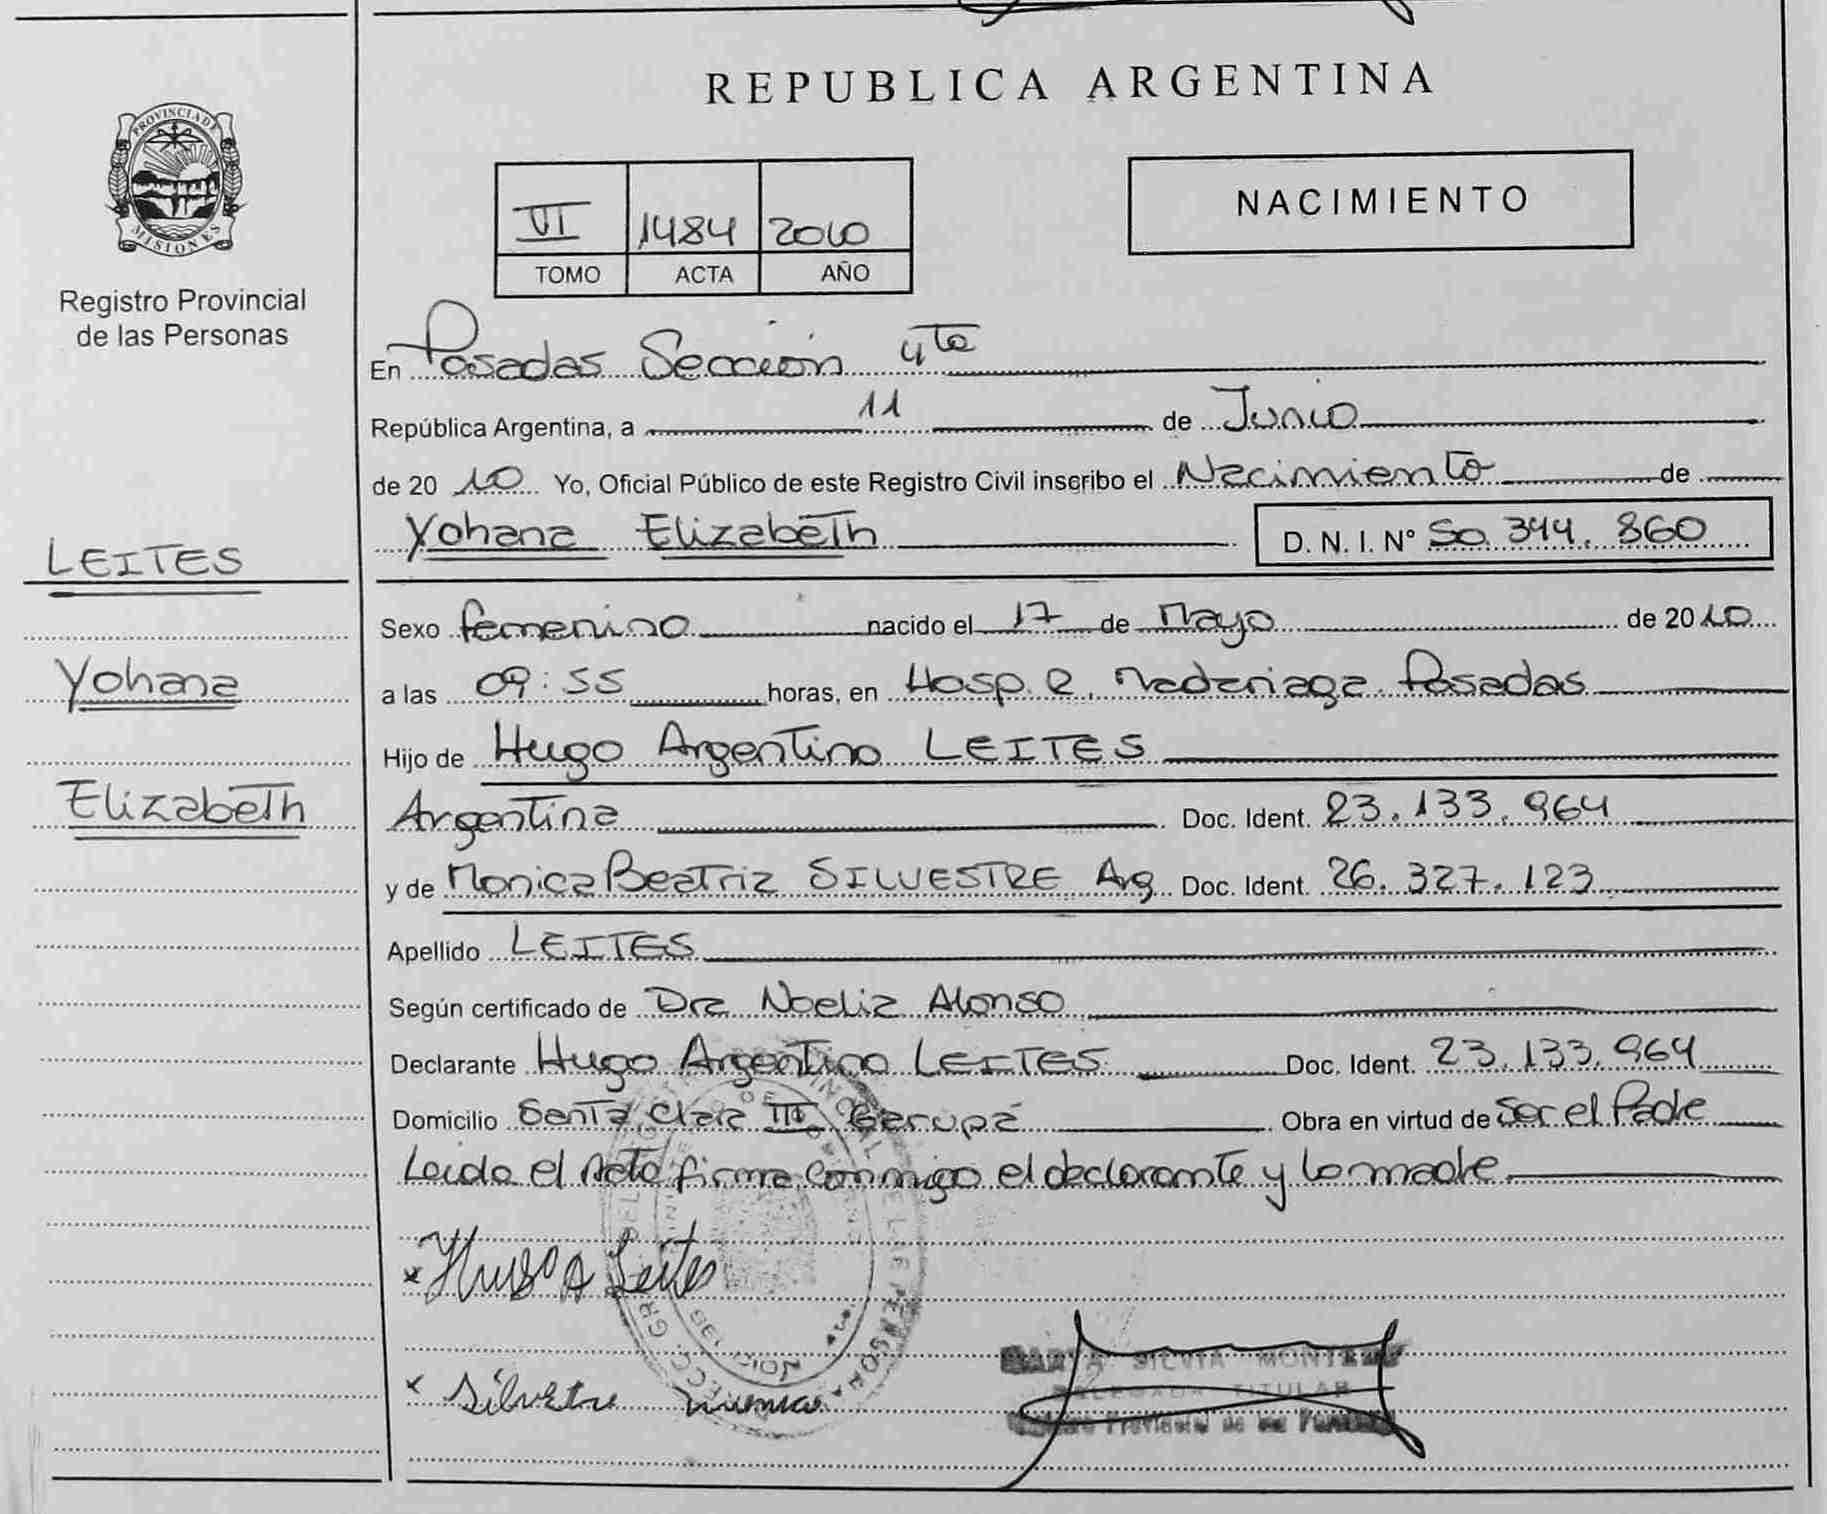 REPUBLICA ARGENTINA
PROVINCIA DE
MISIONES
Registro Provincial
de las Personas
NACIMIENTO
VI 1484 2010
TOMO ACTA AÑO
En Posadas Sección 4ta
República Argentina, a 11 de Junio
de 2010 Yo, Oficial Público de este Registro Civil inscribo el Nacimiento de
Yohana Elizabeth D. N. I. N° 50.344.860
LEITES
Yohana
Elizabeth
Sexo femenino nacido el 17 de Mayo de 2010
a las 09:55 horas, en Hosp. R. Madariaga Posadas
Hijo de Hugo Argentino LEITES
Argentina Doc. Ident. 23.133.964
y de Monica Beatriz SILVESTRE Arg Doc. Ident. 26.327.123
Apellido LEITES
Según certificado de Dra Noelia Alonso
Declarante Hugo Argentino LEITES Doc. Ident. 23.133.964
Domicilio Santa Clara III Garupá Obra en virtud de Ser el Padre
Leida el Acta firma conmigo el declarante y la madre
x Hugo A Leites
x Silvetre
SILVIA
TITULAR
Provincial de las